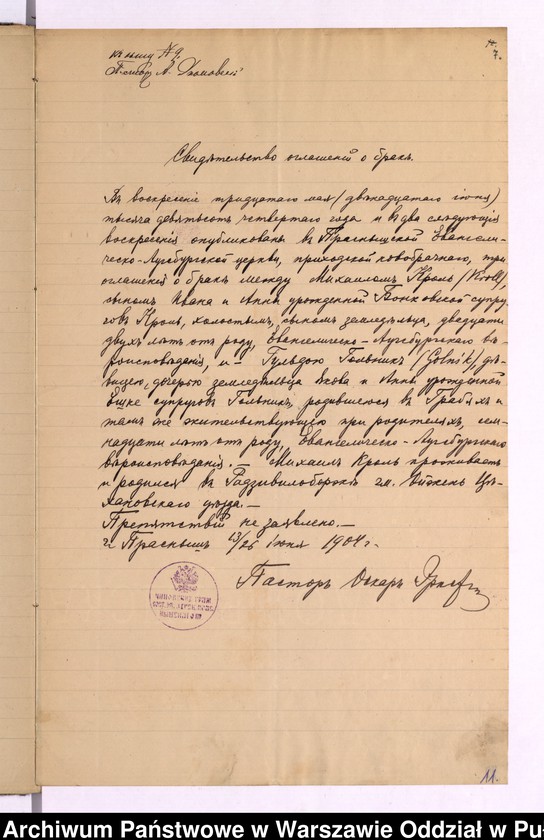 къ акту № 9.
Пасторъ А.
№ 7.
Свидѣтельство оглашеній о бракѣ.
Въ воскресеніе тридцатаго мая/(двѣнадцатаго іюня)
тысяча девятьсотъ четвертаго года и въ два слѣдующія
воскресенія опубликованы въ Праснышской Евангеличе-
ческо-Аугсбургской церкви, приходской новобрачнаго, три
оглашенія о бракѣ между Михаиломъ Кроль /Kroll/,
сыномъ Ивана и Анны урожденной супру-
говъ Кроль, холостымъ, сыномъ земледѣльца, двадцати
двухъ лѣтъ отъ роду, Евангелическо-Аугсбургскаго вѣ-
роисповѣданія, и - Гульдою Гольникъ (Golnik), дѣ-
вицею, дочерью земледѣльца Якова и Анны урожденной
супруговъ Гольникъ, родившеюся въ и
тамъ же жительствующею при родителяхъ, сем-
надцати лѣтъ отъ роду, Евангелическо-Аугсбургскаго
вѣроисповѣданія. - Михаилъ Кроль проживаетъ
и родился въ гм. Цѣ-
хановскаго уѣзда.-
Препятствій не заявлено.-
г. Праснышъ 13/26 іюня 1904 г.
Пасторъ Оскаръ
11.
Archiwum Państwowe w Warszawie Oddział w Pu